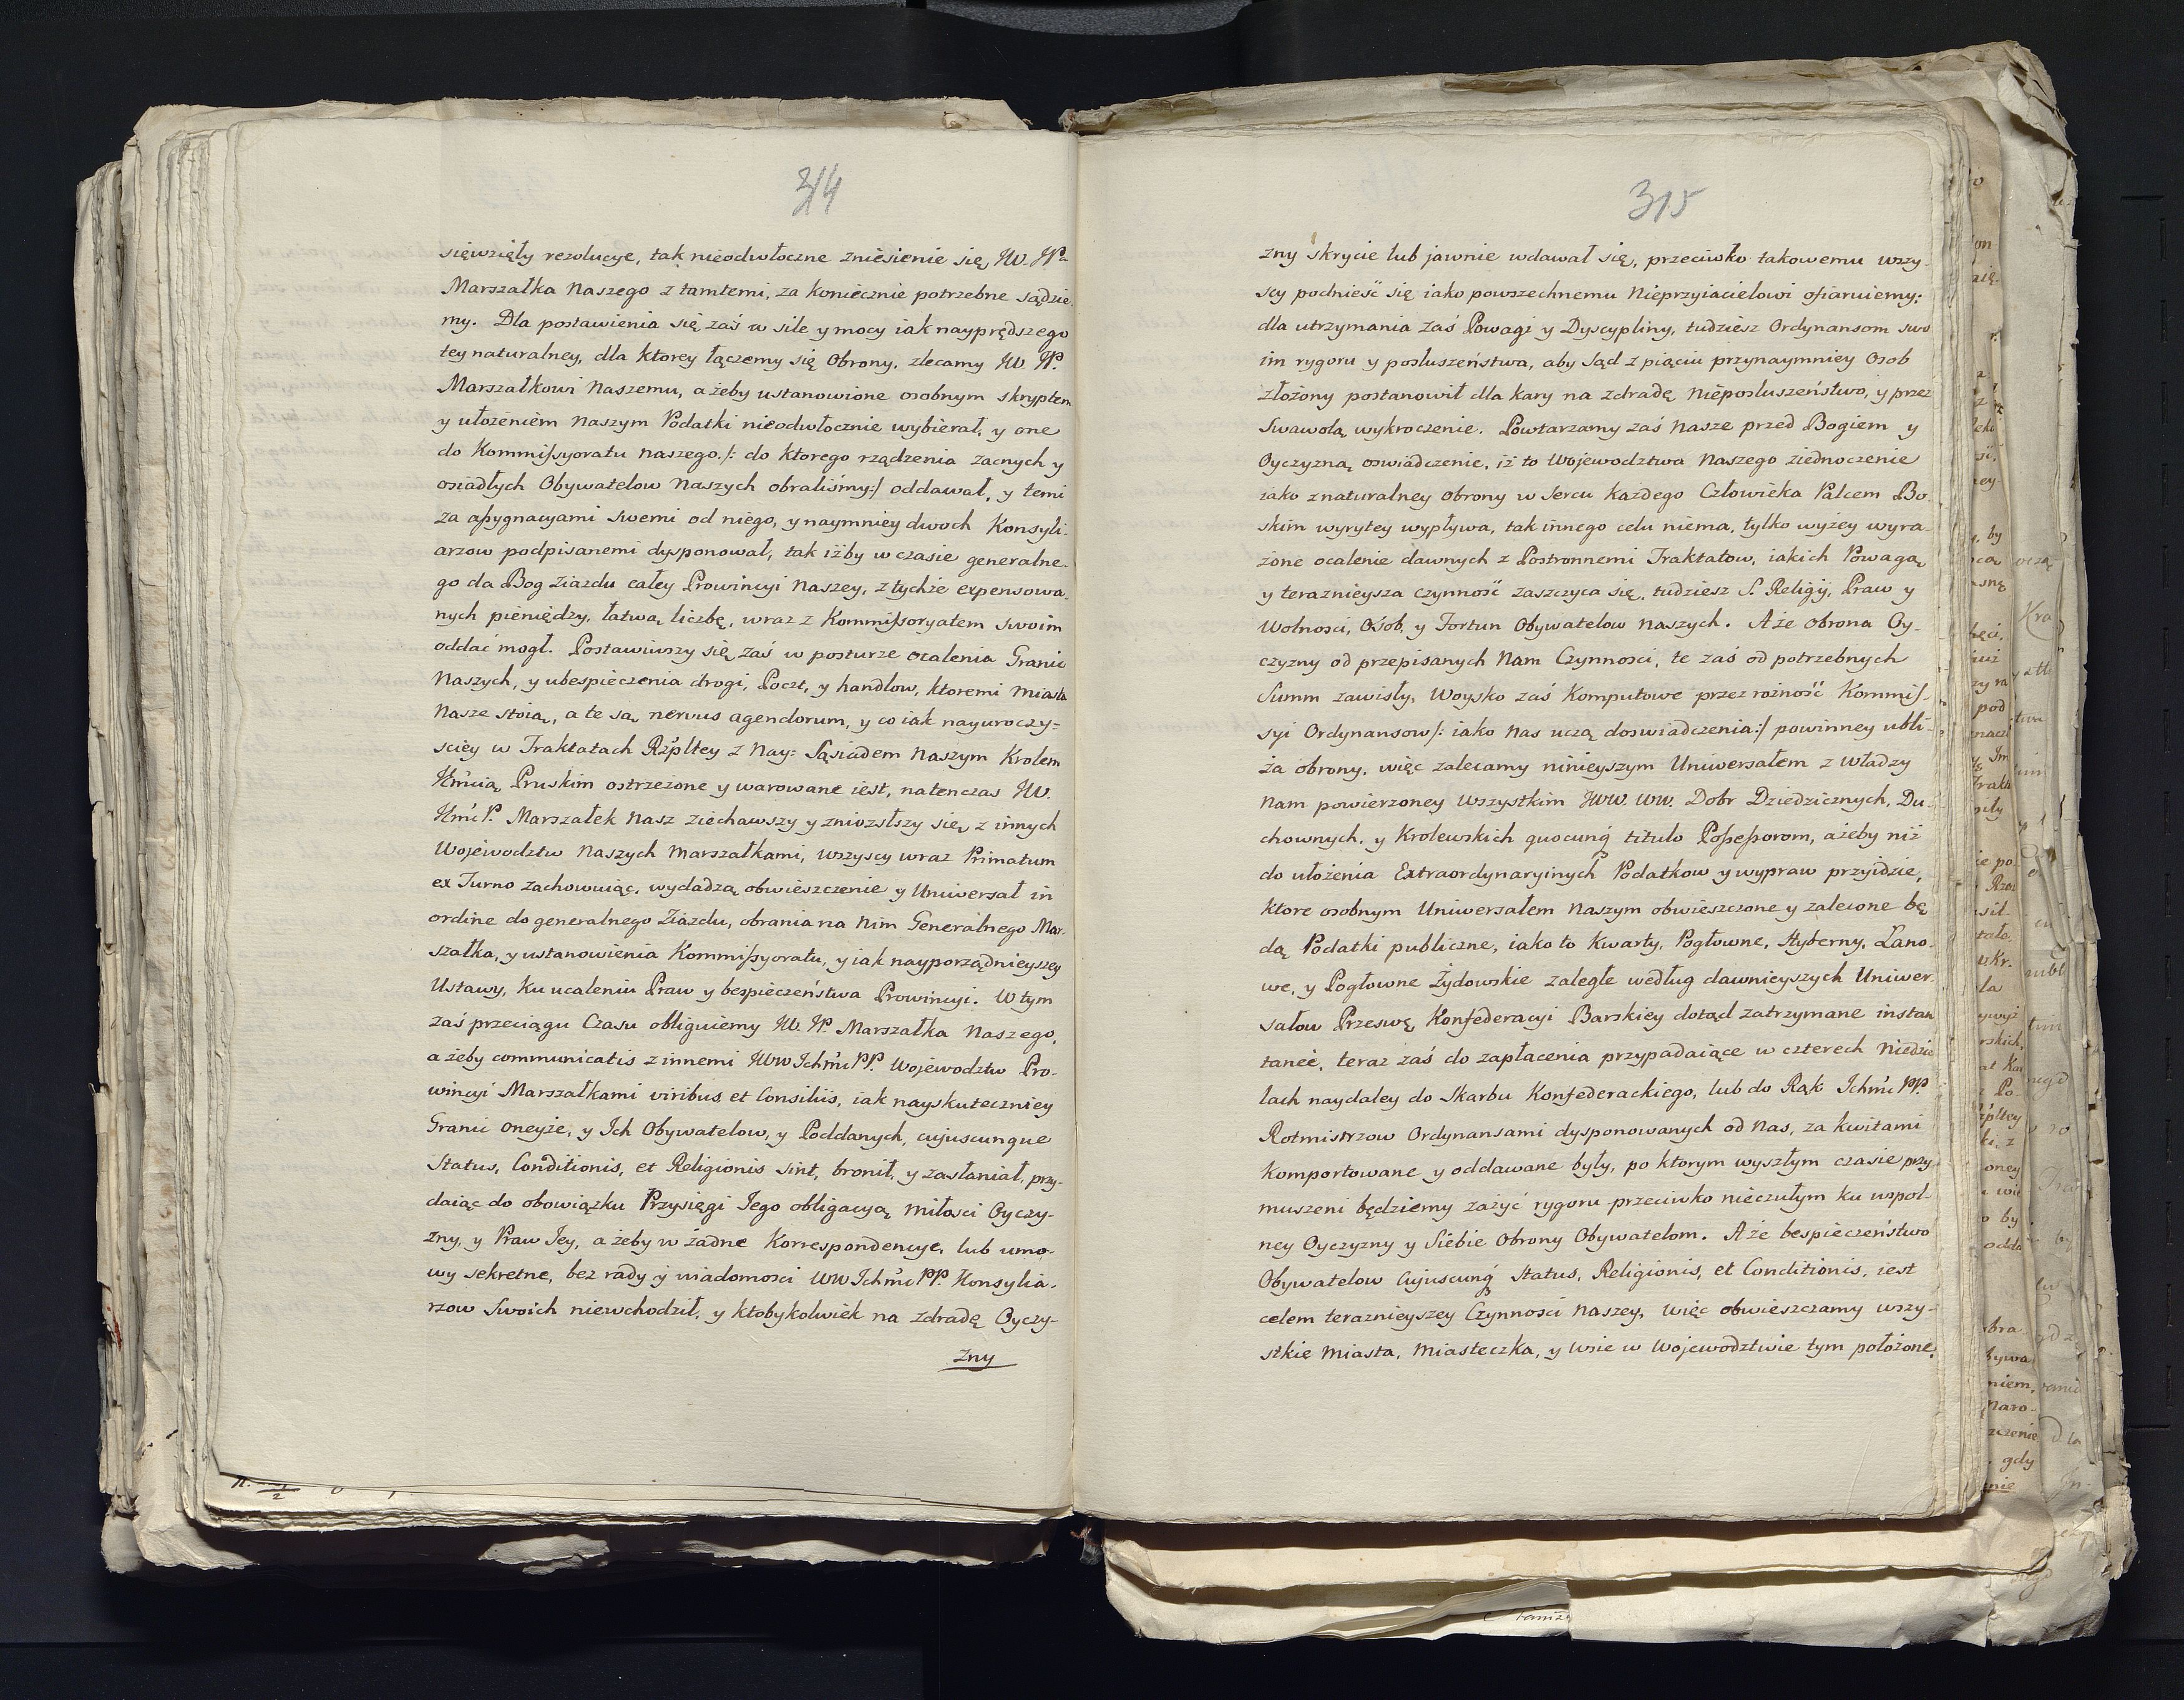 314
sięwzięły rezolucye, tak nieodwłoczne zniesienie się JW. JP.
Marszałka Naszego z tamtemi, za koniecznie potrzebne sądzie
my. Dla postawienia się zaś w sile y mocy iak nayprędszego
tey naturalney, dla ktorey łączemy się Obrony, zlecamy JW JP.
Marszałkowi Naszemu, ażeby ustanowione osobnym skryptem
y ułożeniem Naszym Podatki nieodwłocznie wybierał, y one
do Kommissyoratu naszego /: do ktorego rządzenia zacnych y
osiadłych Obywatelow Naszych obraliśmy :/ oddawał, y temi
za assygnacyami swemi od niego, y naymniey dwoch Konsyli-
arzow podpisanemi dysponował, tak iżby w czasie generalne-
go da Bog ziazdu całey Prowincyi Naszey, z tychże expensowa-
nych pieniędzy, łatwą liczbę, wraz z Kommissoryatem swoim
oddać mogł. Postawiwszy się zaś w posturze ocalenia Granic
Naszych, y ubespieczenia drogi, Poczt, y handlow, ktoremi Miasta
Nasze stoią, a te są nervus agendorum, y co iak nayuroczy=
sciey w Traktatach Rzpltey z Nay: Sąsiadem Naszym Krolem
Jmcią Pruskim ostrzeżone y warowane iest, natenczas JW.
Jmć P. Marszałek Nasz ziechawszy y zniozłszy się z innych
Wojewodztw Naszych Marszałkami, wszyscy wraz Primatum
ex Turno zachowuiąc, wydadzą obwieszczenie y Uniwersał in
ordine do generalnego Ziazdu, obrania na nim Generalnego Mar-
szałka, y ustanowienia Kommissyoratu, y iak nayporządnieyszey
Ustawy, ku ucaleniu Praw y bespieczeństwa Prowincyi. W tym
zaś przeciągu Czasu obliguiemy JW. JP. Marszałka Naszego,
ażeby communicatis z innemi JWW Ichmć PP. Wojewodztw Pro-
wincyi Marszałkami viribus et Consiliis, iak nayskuteczniey
Granic oneyże, y Ich Obywatelow, y Poddanych, cujuscunque
Status, Conditionis, et Religionis sint, bronił, y zasłaniał, przy-
daiąc do obowiązku Przysięgi Jego obligacyą miłosci Oyczy-
zny, y Praw Jey, ażeby w żadne Korrespondencye, lub umo-
wy sekretne, bez rady y wiadomosci WW Ichmć PP. Konsylia-
rzow Swoich niewchodził, y ktobykolwiek na zdradę Oyczy-
zny
315
zny skrycie lub jawnie wdawał się, przeciwko takowemu wszy-
scy podnieść się iako powszechnemu Nieprzyiacielowi ofiaruiemy:
dla utrzymania zaś Powagi y Dyscypliny, tudziesz Ordynansom swo
im rygoru y posłuszeństwa, aby Sąd z piąciu przynaymniey Osob
złożony postanowił dla kary na zdradę, Nieposłuszeństwo, y przez
Swawolą wykroczenie. Powtarzamy zaś Nasze przed Bogiem y
Oyczyzną oswiadczenie, iż to Wojewodztwa Naszego ziednoczenie
iako z naturalney obrony w Sercu Każdego Człowieka Palcem Bo-
skim wyrytey wypływa, tak innego celu niema, tylko wyżey wyra-
żone ocalenie dawnych z Postronnemi Traktatow, iakich Powagą
y teraznieysza czynność zaszczyca się, tudziesz S. Religij, Praw y
Wolnosci, Osob, y Fortun Obywatelow Naszych. A że obrona Oy-
czyzny od przepisanych Nam Czynnosci, te zaś od potrzebnych
Summ zawisły, Woysko zaś Komputowe przez rożność Kommis-
syi Ordynansow /: iako Nas uczą doswiadczenia :/ powinney ubli-
ża obrony, więc zalecamy ninieyszym Uniwersałem z władzy
Nam powierzoney Wszystkim JWW. WW. Dobr Dziedzicznych, Du-
chownych, y Krolewskich quocunq titulo Possessorom, ażeby niż
do ułożenia Extraordynaryinych Podatkow y wypraw przyidzie,
ktore osobnym Uniwersałem Naszym obwieszczone y zalecone bę
dą Podatki publiczne, iako to Kwarty, Pogłowne, Hyberny, Łano-
we, y Pogłowne Żydowskie zaległe według dawnieyszych Uniwer-
sałow Przeswę Konfederacyi Barskiey dotąd zatrzymane instan
taneè, teraz zaś do zapłacenia przypadaiące w czterech Niedzie
lach naydaley do Skarbu Konfederackiego, lub do Rąk Ichmć PP.
Rotmistrzow Ordynansami dysponowanych od Nas, za kwitami
Komportowane y oddawane były, po ktorym wyszłym czasie przy
muszeni będziemy zażyć rygoru przeciwko nieczułym ku wspol-
ney Oyczyzny y Siebie Obrony Obywatelom. A że bespieczeństwo
Obywatelow Cujuscunq Status, Religionis, et Conditionis, iest
celem teraznieyszey Czynnosci Naszey, więc obwieszczamy wszy-
stkie Miasta, Miasteczka, y Wsie w Wojewodztwie tym położone,